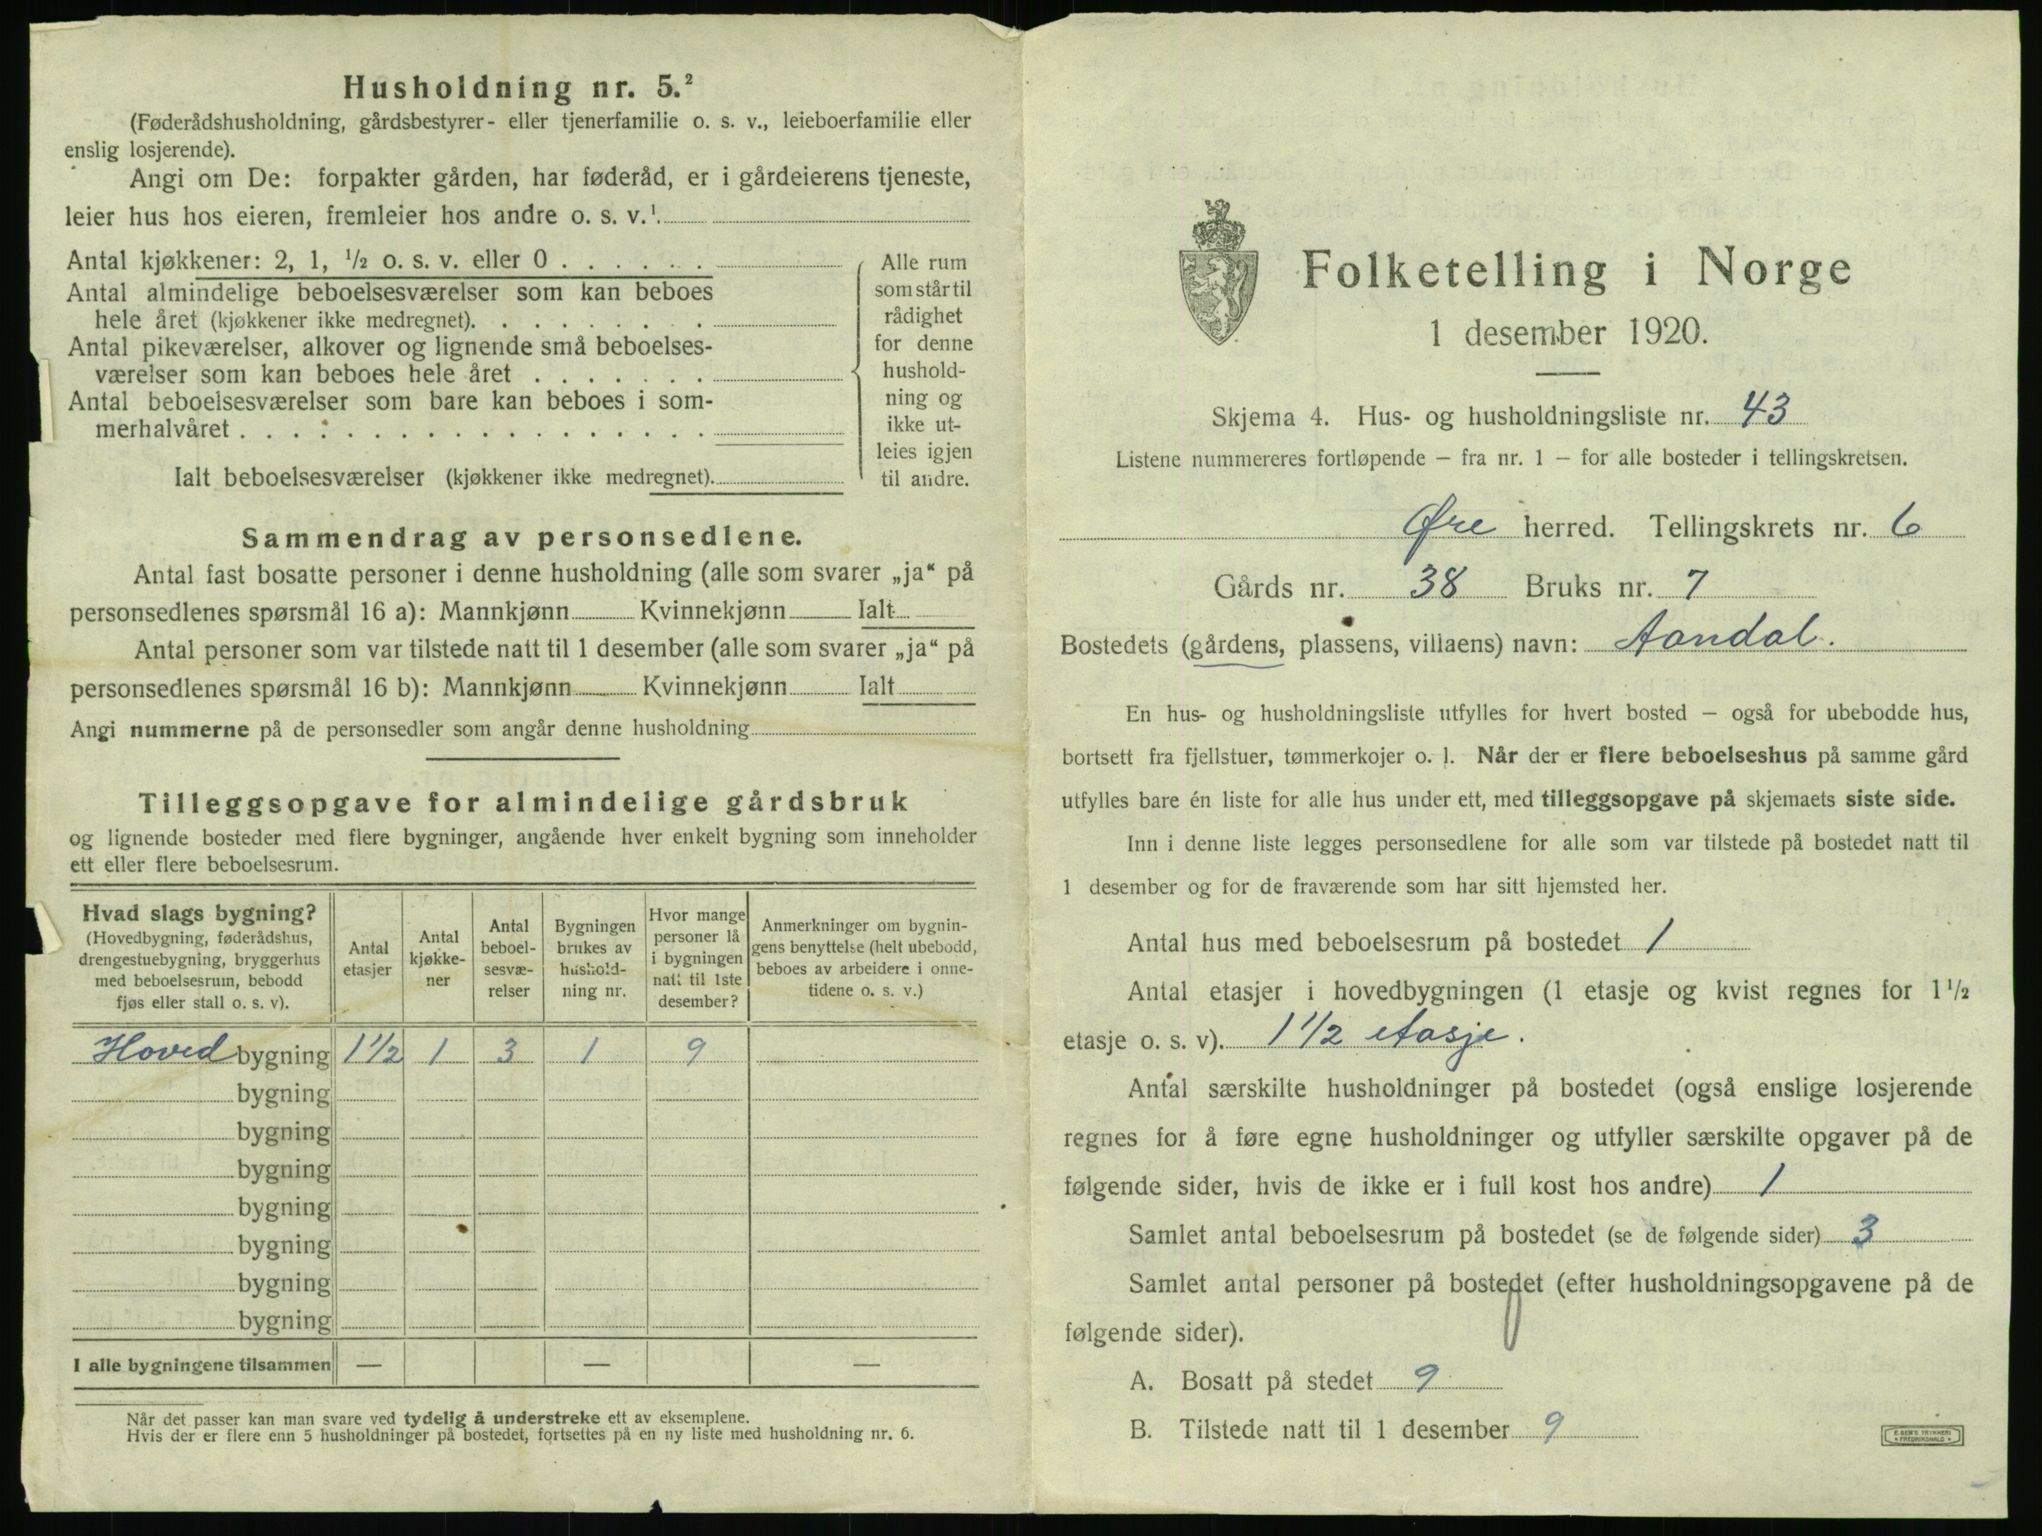 Husholdning nr. 5.²
(Føderådshusholdning, gårdsbestyrer- eller tjenerfamilie o. s. v., leieboerfamilie eller
enslig losjerende).
Angi om De: forpakter gården, har føderåd, er i gårdeierens tjeneste,
leier hus hos eieren, fremleier hos andre o. s. v.¹
Antal kjøkkener: 2, 1, ½ o. s. v. eller 0
Antal almindelige beboelsesværelser som kan beboes
hele året (kjøkkener ikke medregnet).
Antal pikeværelser, alkover og lignende små beboelses-
værelser som kan beboes hele året
Antal beboelsesværelser som bare kan beboes i som-
merhalvåret
Ialt beboelsesværelser (kjøkkener ikke medregnet).
Alle rum
som står til
rådighet
for denne
hushold-
ning og
ikke ut-
leies igjen
til andre.
Sammendrag av personsedlene.
Antal fast bosatte personer i denne husholdning (alle som svarer „ja“ på
personsedlenes spørsmål 16 a): Mannkjønn Kvinnekjønn Ialt
Antal personer som var tilstede natt til 1 desember (alle som svarer „ja“ på
personsedlenes spørsmål 16 b): Mannkjønn Kvinnekjønn Ialt
Angi nummerne på de personsedler som angår denne husholdning
Tilleggsopgave for almindelige gårdsbruk
og lignende bosteder med flere bygninger, angående hver enkelt bygning som inneholder
ett eller flere beboelsesrum.
Hvad slags bygning?
(Hovedbygning, føderådshus,
drengestuebygning, bryggerhus
med beboelsesrum, bebodd
fjøs eller stall o. s. v).
Antal
etasjer
Antal
kjøkke-
ner
Antal
beboel-
sesvæ-
relser
Bygningen
brukes av
hushold-
ning nr.
Hvor mange
personer lå
i bygningen
natt til 1ste
desember?
Anmerkninger om bygnin-
gens benyttelse (helt ubebodd,
beboes av arbeidere i onne-
tidene o. s. v.)
Hoved bygning 1½ 1 3 1 9
bygning
bygning
bygning
bygning
bygning
bygning
bygning
I alle bygningene tilsammen — — —
Når det passer kan man svare ved tydelig å understreke ett av eksemplene.
Hvis der er flere enn 5 husholdninger på bostedet, fortsettes på en ny liste med husholdning nr. 6.
Folketelling i Norge
1 desember 1920.
Skjema 4. Hus- og husholdningsliste nr. 43
Listene nummereres fortløpende — fra nr. 1 — for alle bosteder i tellingskretsen.
Øre herred. Tellingskrets nr. 6
Gårds nr. 38 Bruks nr. 7
Bostedets (gårdens, plassens, villaens) navn: Aandal.
En hus- og husholdningsliste utfylles for hvert bosted — også for ubebodde hus,
bortsett fra fjellstuer, tømmerkojer o. l. Når der er flere beboelseshus på samme gård
utfylles bare én liste for alle hus under ett, med tilleggsopgave på skjemaets siste side.
Inn i denne liste legges personsedlene for alle som var tilstede på bostedet natt til
1 desember og for de fraværende som har sitt hjemsted her.
Antal hus med beboelsesrum på bostedet 1
Antal etasjer i hovedbygningen (1 etasje og kvist regnes for 1½
etasje o. s. v). 1½ etasje.
Antal særskilte husholdninger på bostedet (også enslige losjerende
regnes for å føre egne husholdninger og utfyller særskilte opgaver på de
følgende sider, hvis de ikke er i full kost hos andre) 1
Samlet antal beboelsesrum på bostedet (se de følgende sider) 3
Samlet antal personer på bostedet (efter husholdningsopgavene på de
følgende sider).
A. Bosatt på stedet 9
B. Tilstede natt til 1 desember 9